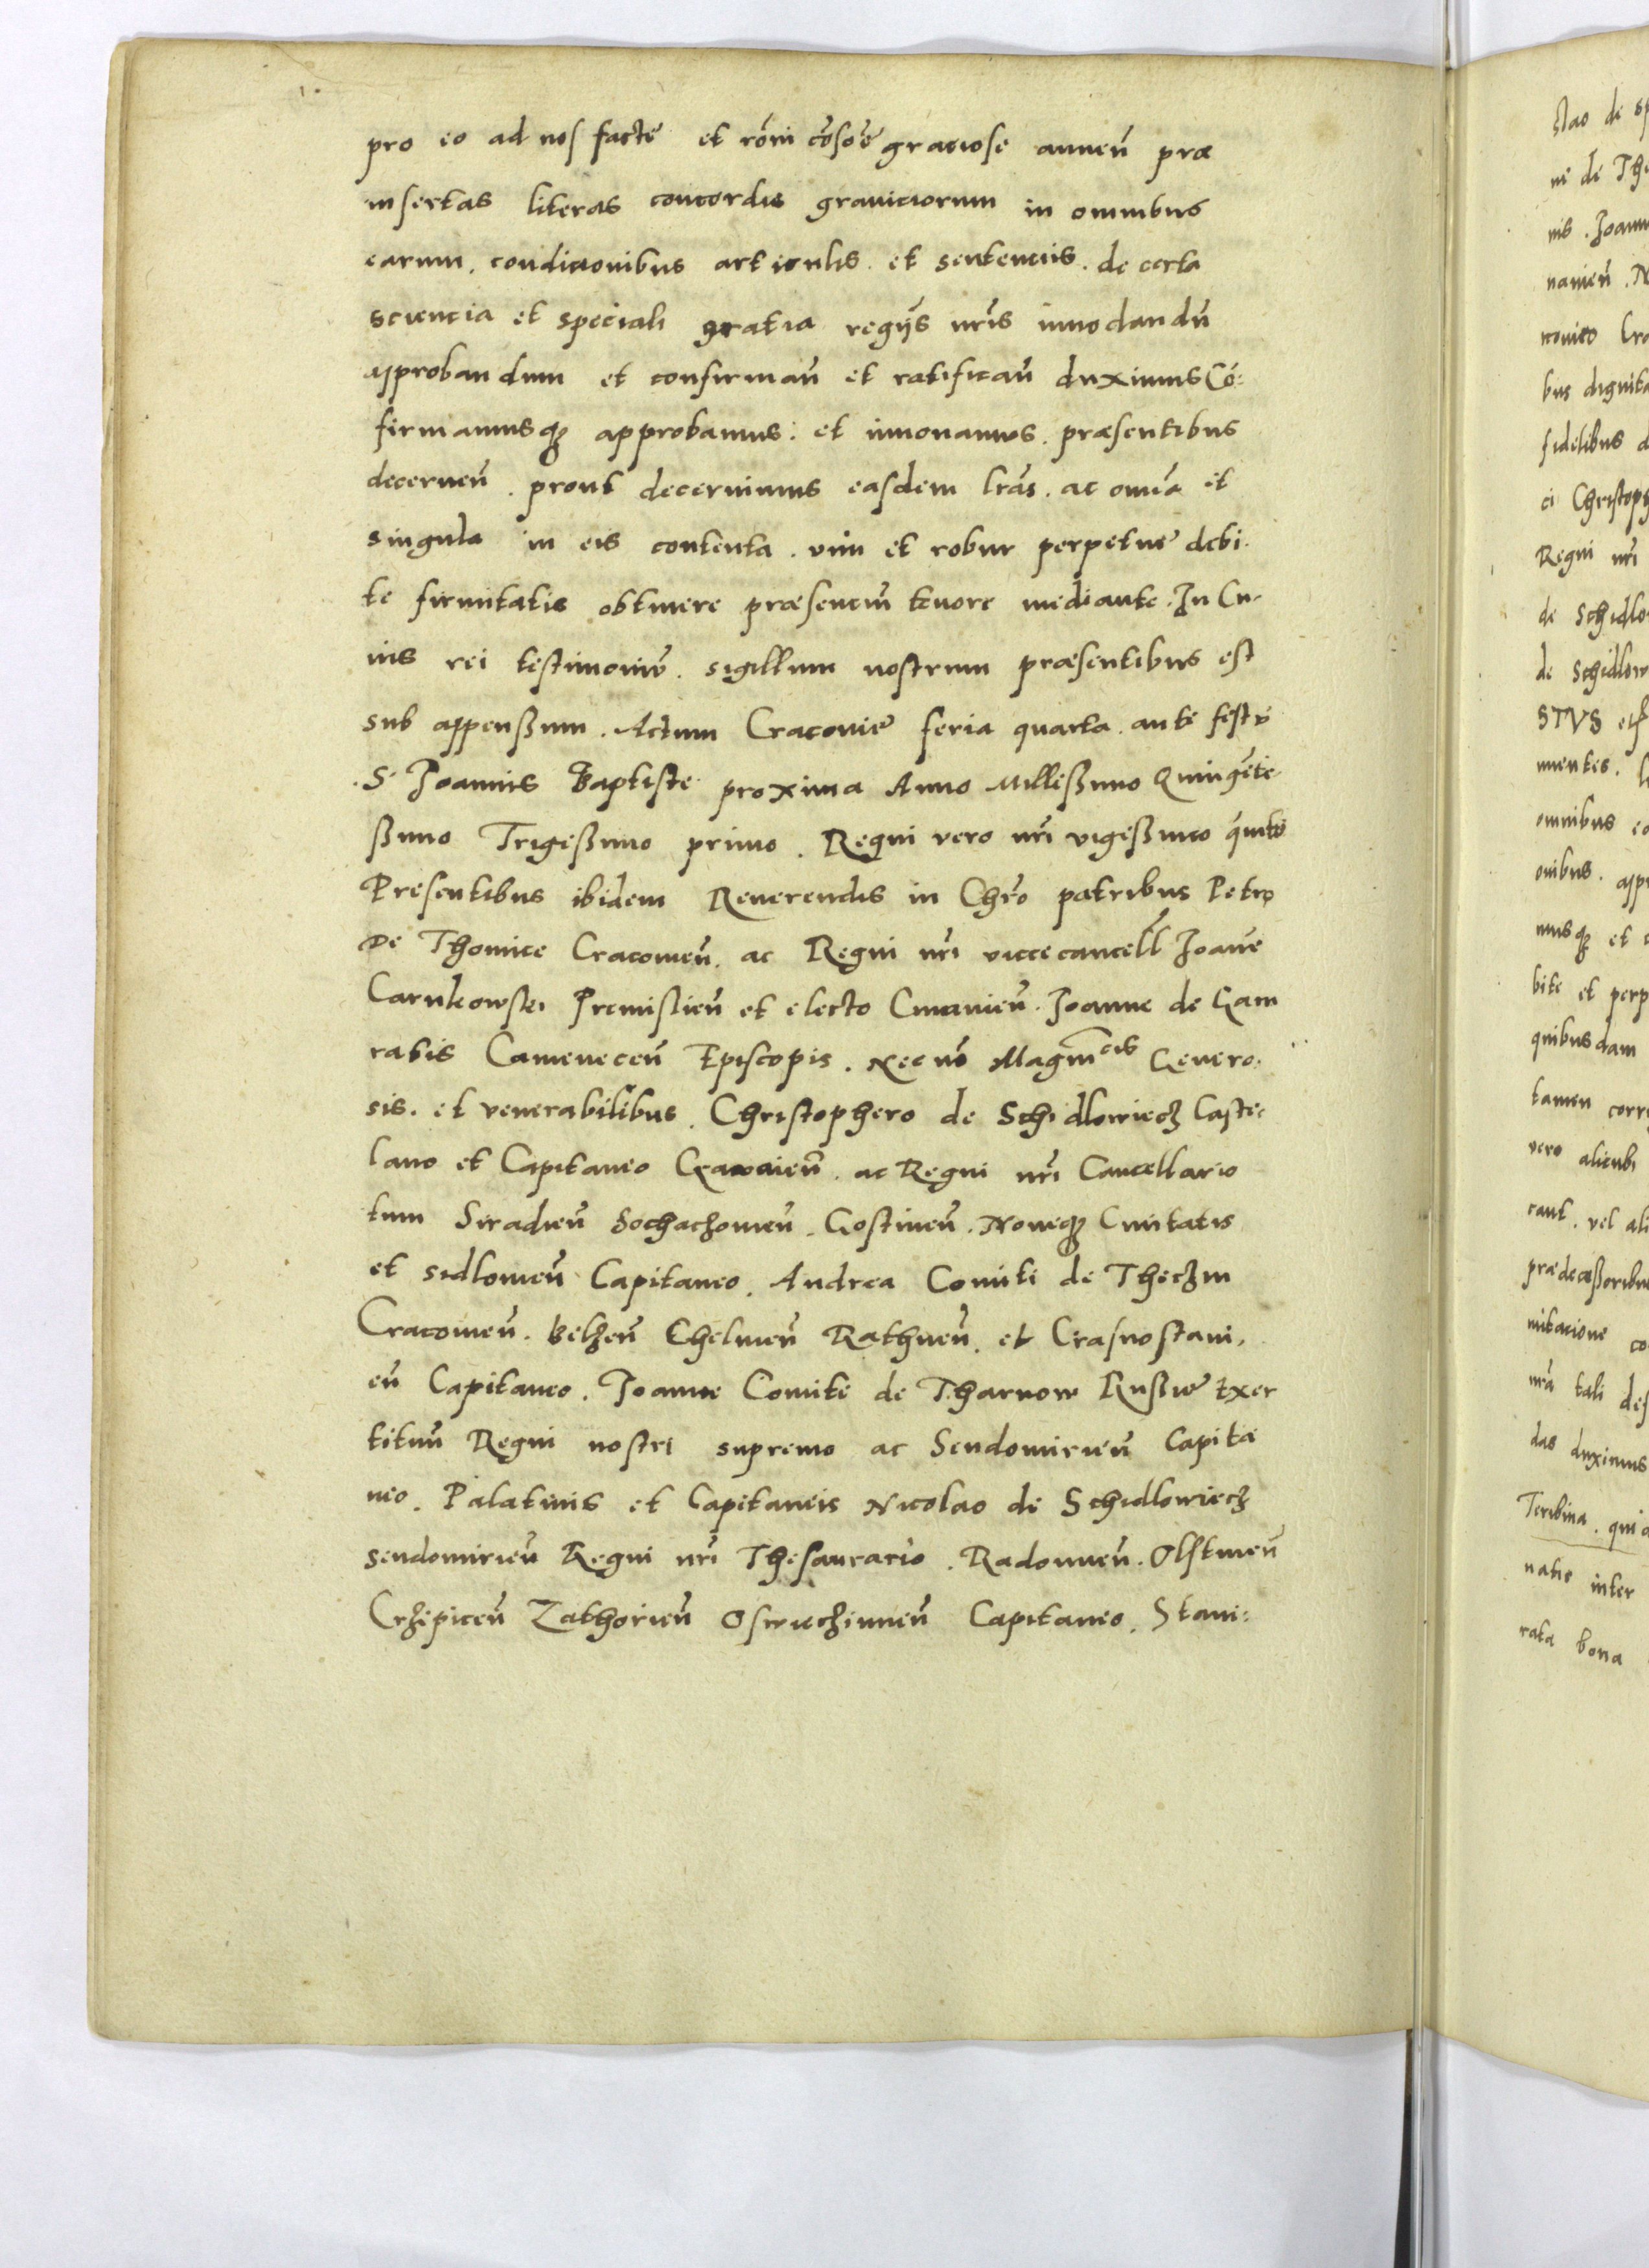 pro eo ad nos facte et rom̃ cõsoẽ graciose annueñ præ
insertas literas concordie graniciorum in omnibus
earum. condicionibus articulis. et sentenciis. de certa
sciencia et speciali gratia regijs nrĩs innodandũ
approbandum et confirmañ et ratificañ duximus Cõ:
firmamusq3 approbamus: et innouamus. præsentibus
decerneñ. prout decernimus easdem lrãs. ac omĩa et
singula in eis contenta. vim et robur perpetue debi-
te firmitatis obtinere præsenciũ tenore mediante. In Cu-
ius rei testimoniũ. sigillum nostrum præsentibus est
sub appenßum. Actum Cracouie feria quarta. ante festũ
S. Joannis Baptiste proxima Anno Milleßimo Quingẽte
ßimo Trigeßimo primo. Regni vero nrĩ vigeßimo quĩto
Presentibus ibidem Reuerendis in Chrõ patribus Petro
De Thomice Cracouieñ. ac Regni nrĩ viccecancell Joãne
Carnkowski Premislieñ et electo Cuiauieñ. Joanne de Gam
ratis Cameneceñ Episcopis. Nec nõ Magnĩcis Genero-
sis. et venerabilibus. Christophero de Schidlowiecz Caste-
lano et Capitaneo Cracouieñ. ac Regni nrĩ Cancellario
tum Siradieñ Sochaczouieñ. Gostineñ. Noueq3 Ciuitatis
et sidlouieñ Capitaneo. Andrea Comiti de Theczin
Cracouieñ. Belzeñ Chelmeñ Rathneñ. et Crasnostaui-
eñ Capitaneo. Joanne Comite de Tharnow Rußie Exer
cituũ Regni nostri supremo ac Sendomirieñ Capita
neo. Palatinis et Capitaneis Nicolao de Schidlowiecz
sendomirieñ Regni nrĩ Thesaurario. Radomieñ. Olstineñ
Crzepiceñ Zathorieñ Oswieczimeñ Capitaneo. Stani:
ne de
nis. Joann
nanieñ. N
bus dignita
fidelibus d
ci Christoph
Regni nrĩ
de Schidlo
de Schidlow
STVS
omnibus ea
onibus. app
musq3 et c
bite et perp
quibusdam
tamen corr
vero alicubi
cant. vel ali
prædeceßoribu
mitacione co
nrã tali des
das duximus
Terebina. qui
natis inter
rata bona